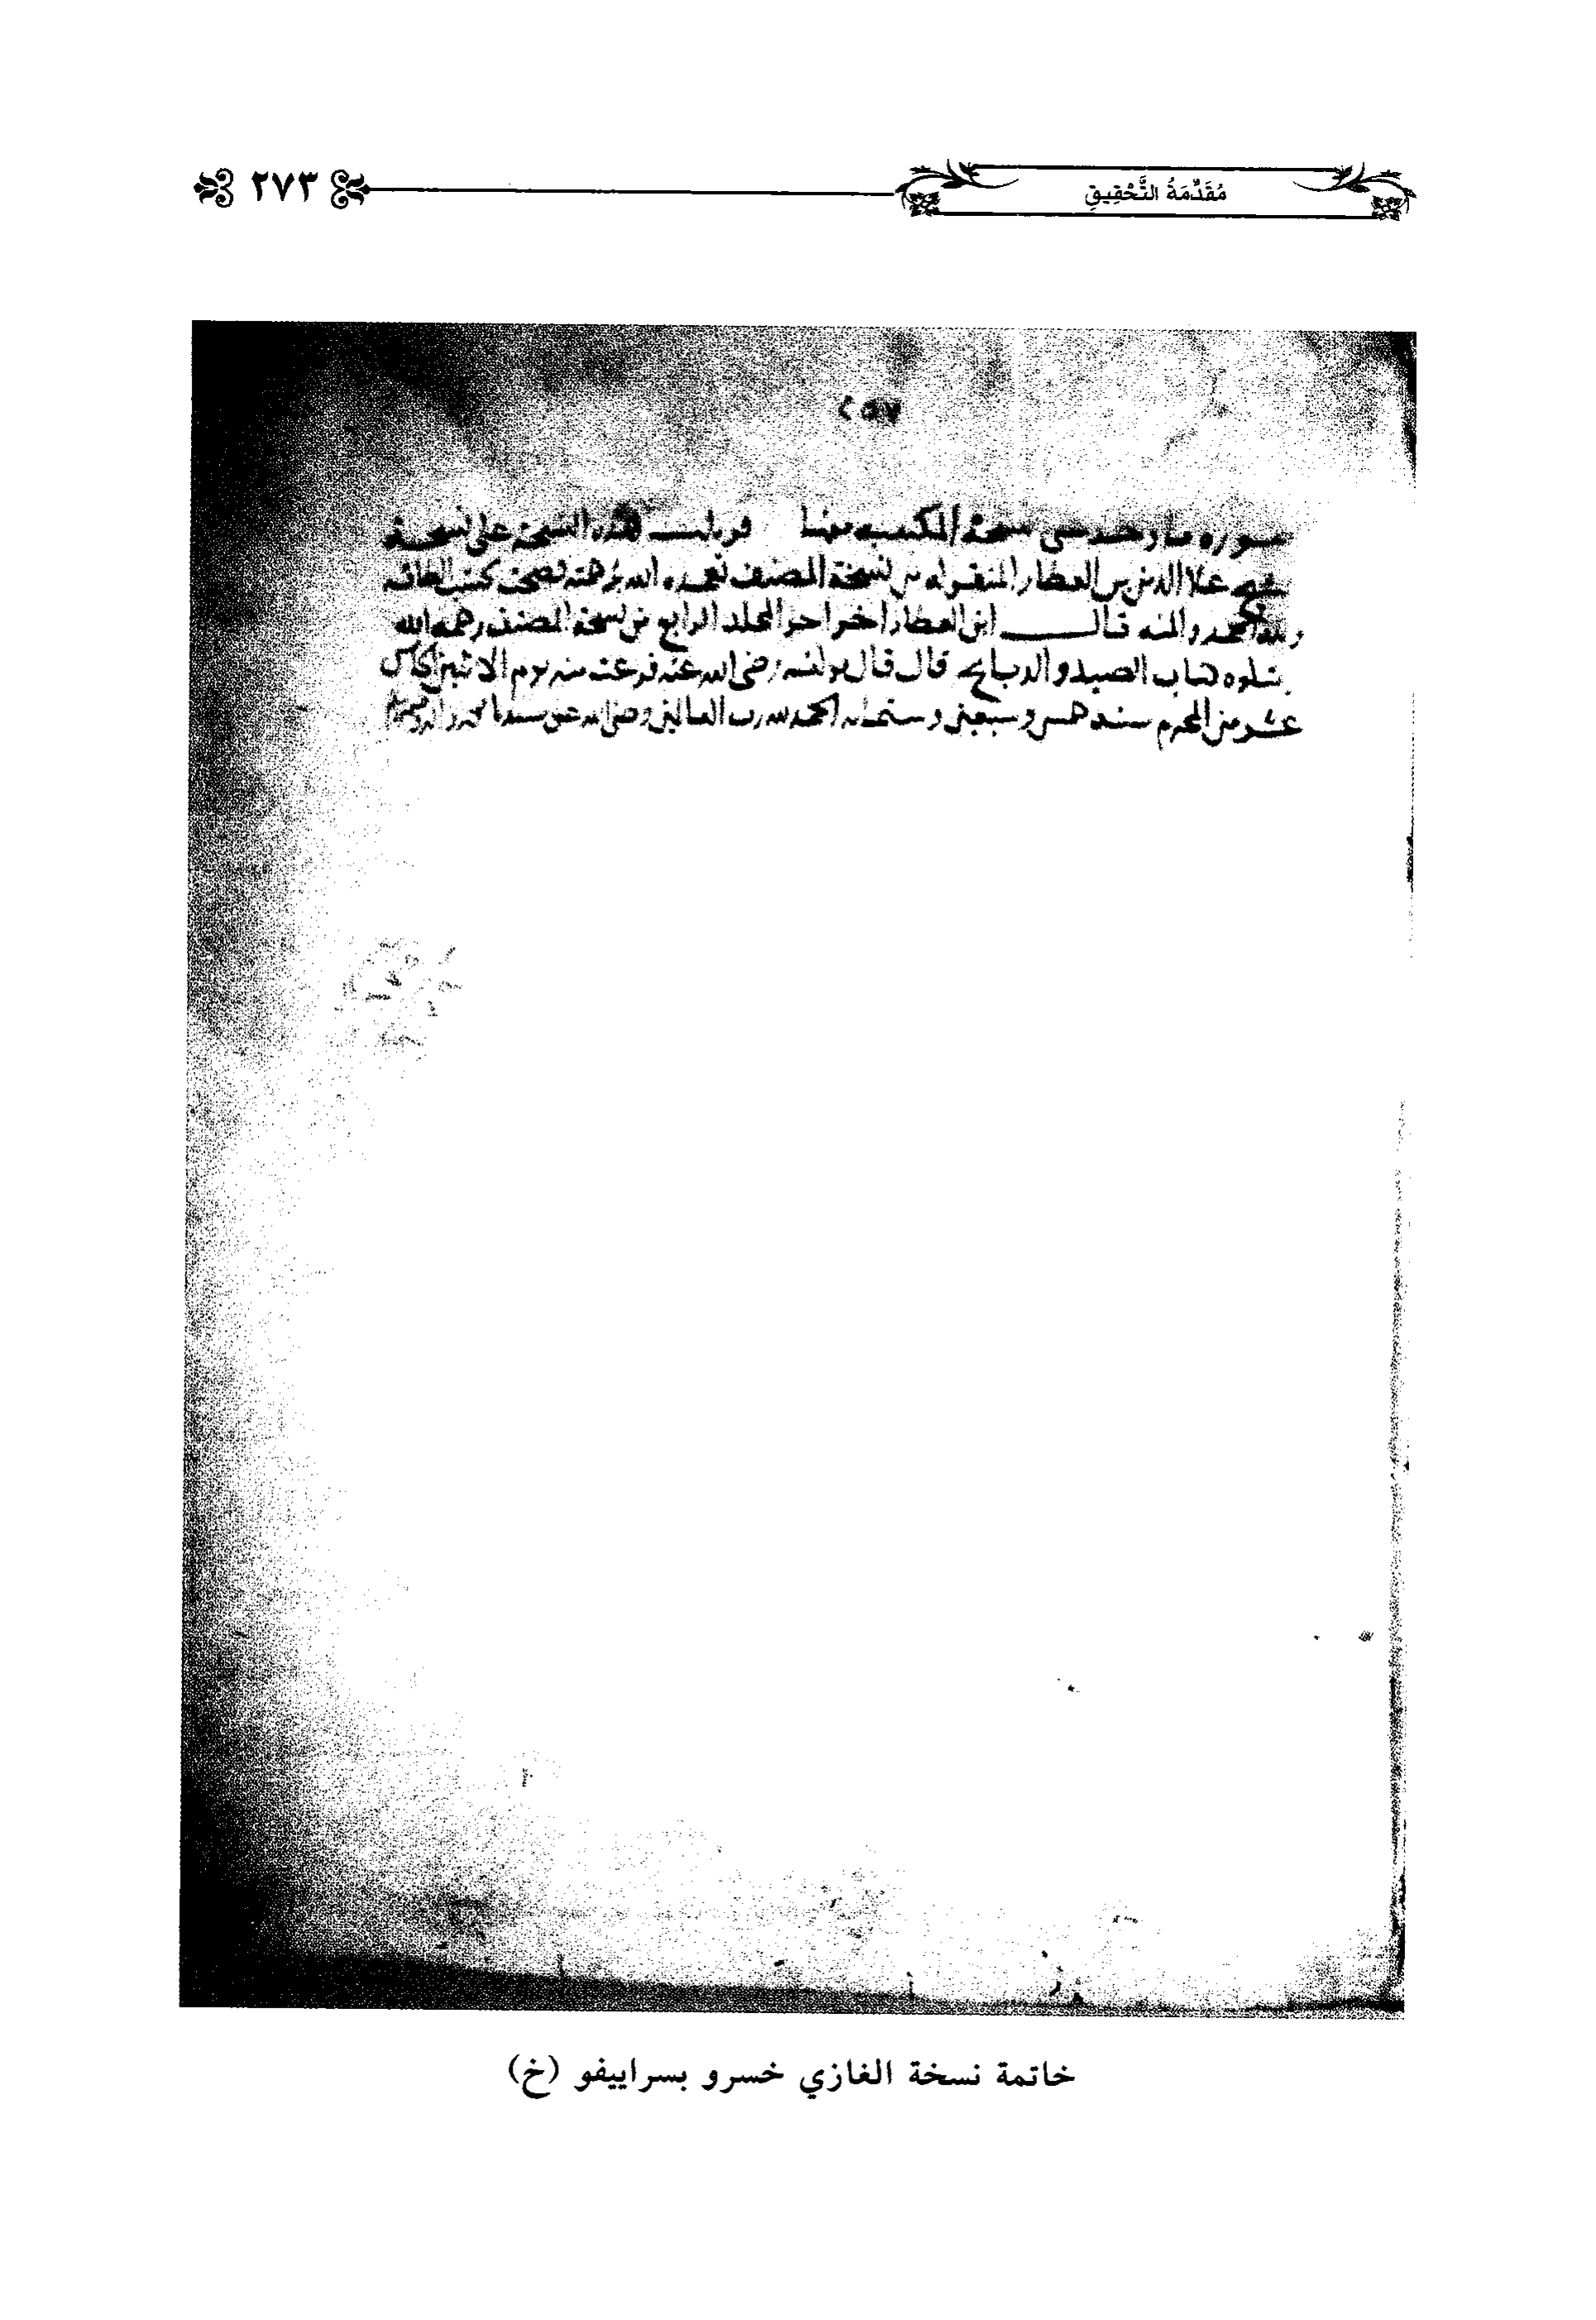 مُقَدِّمَةُ التَّحْقِيقِ
٢٧٣
٢٥٧
صورة ما وجد على نسخة المكتتب منها قوبلت هذه النسخة على نسخة
علا الدين بن العطار المنقوله من نسخة المصنف تغمده الله برحمته فصحت كتب
ولله الحمد والمنه قال ابن العطار اخر المجلد الرابع من نسخة المصنف رحمه الله
يتلوه كتاب الصيد والذبايح قال قال مولفه رضي الله عنه فرغت منه يوم الاثنين الخامس
عشر من المحرم سنه خمس وسبعين وستمايه الحمد لله رب العالمين وصلى الله على سيدنا محمد
خاتمة نسخة الغازي خسرو بسراييفو (خ)